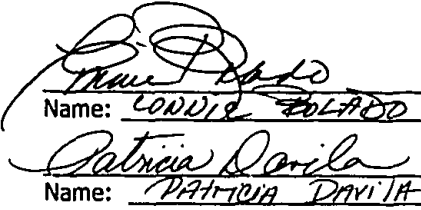 Connie Bolado
Name: CONNIE BOLADO
Patricia Davila
Name: PATRICIA DAVILA